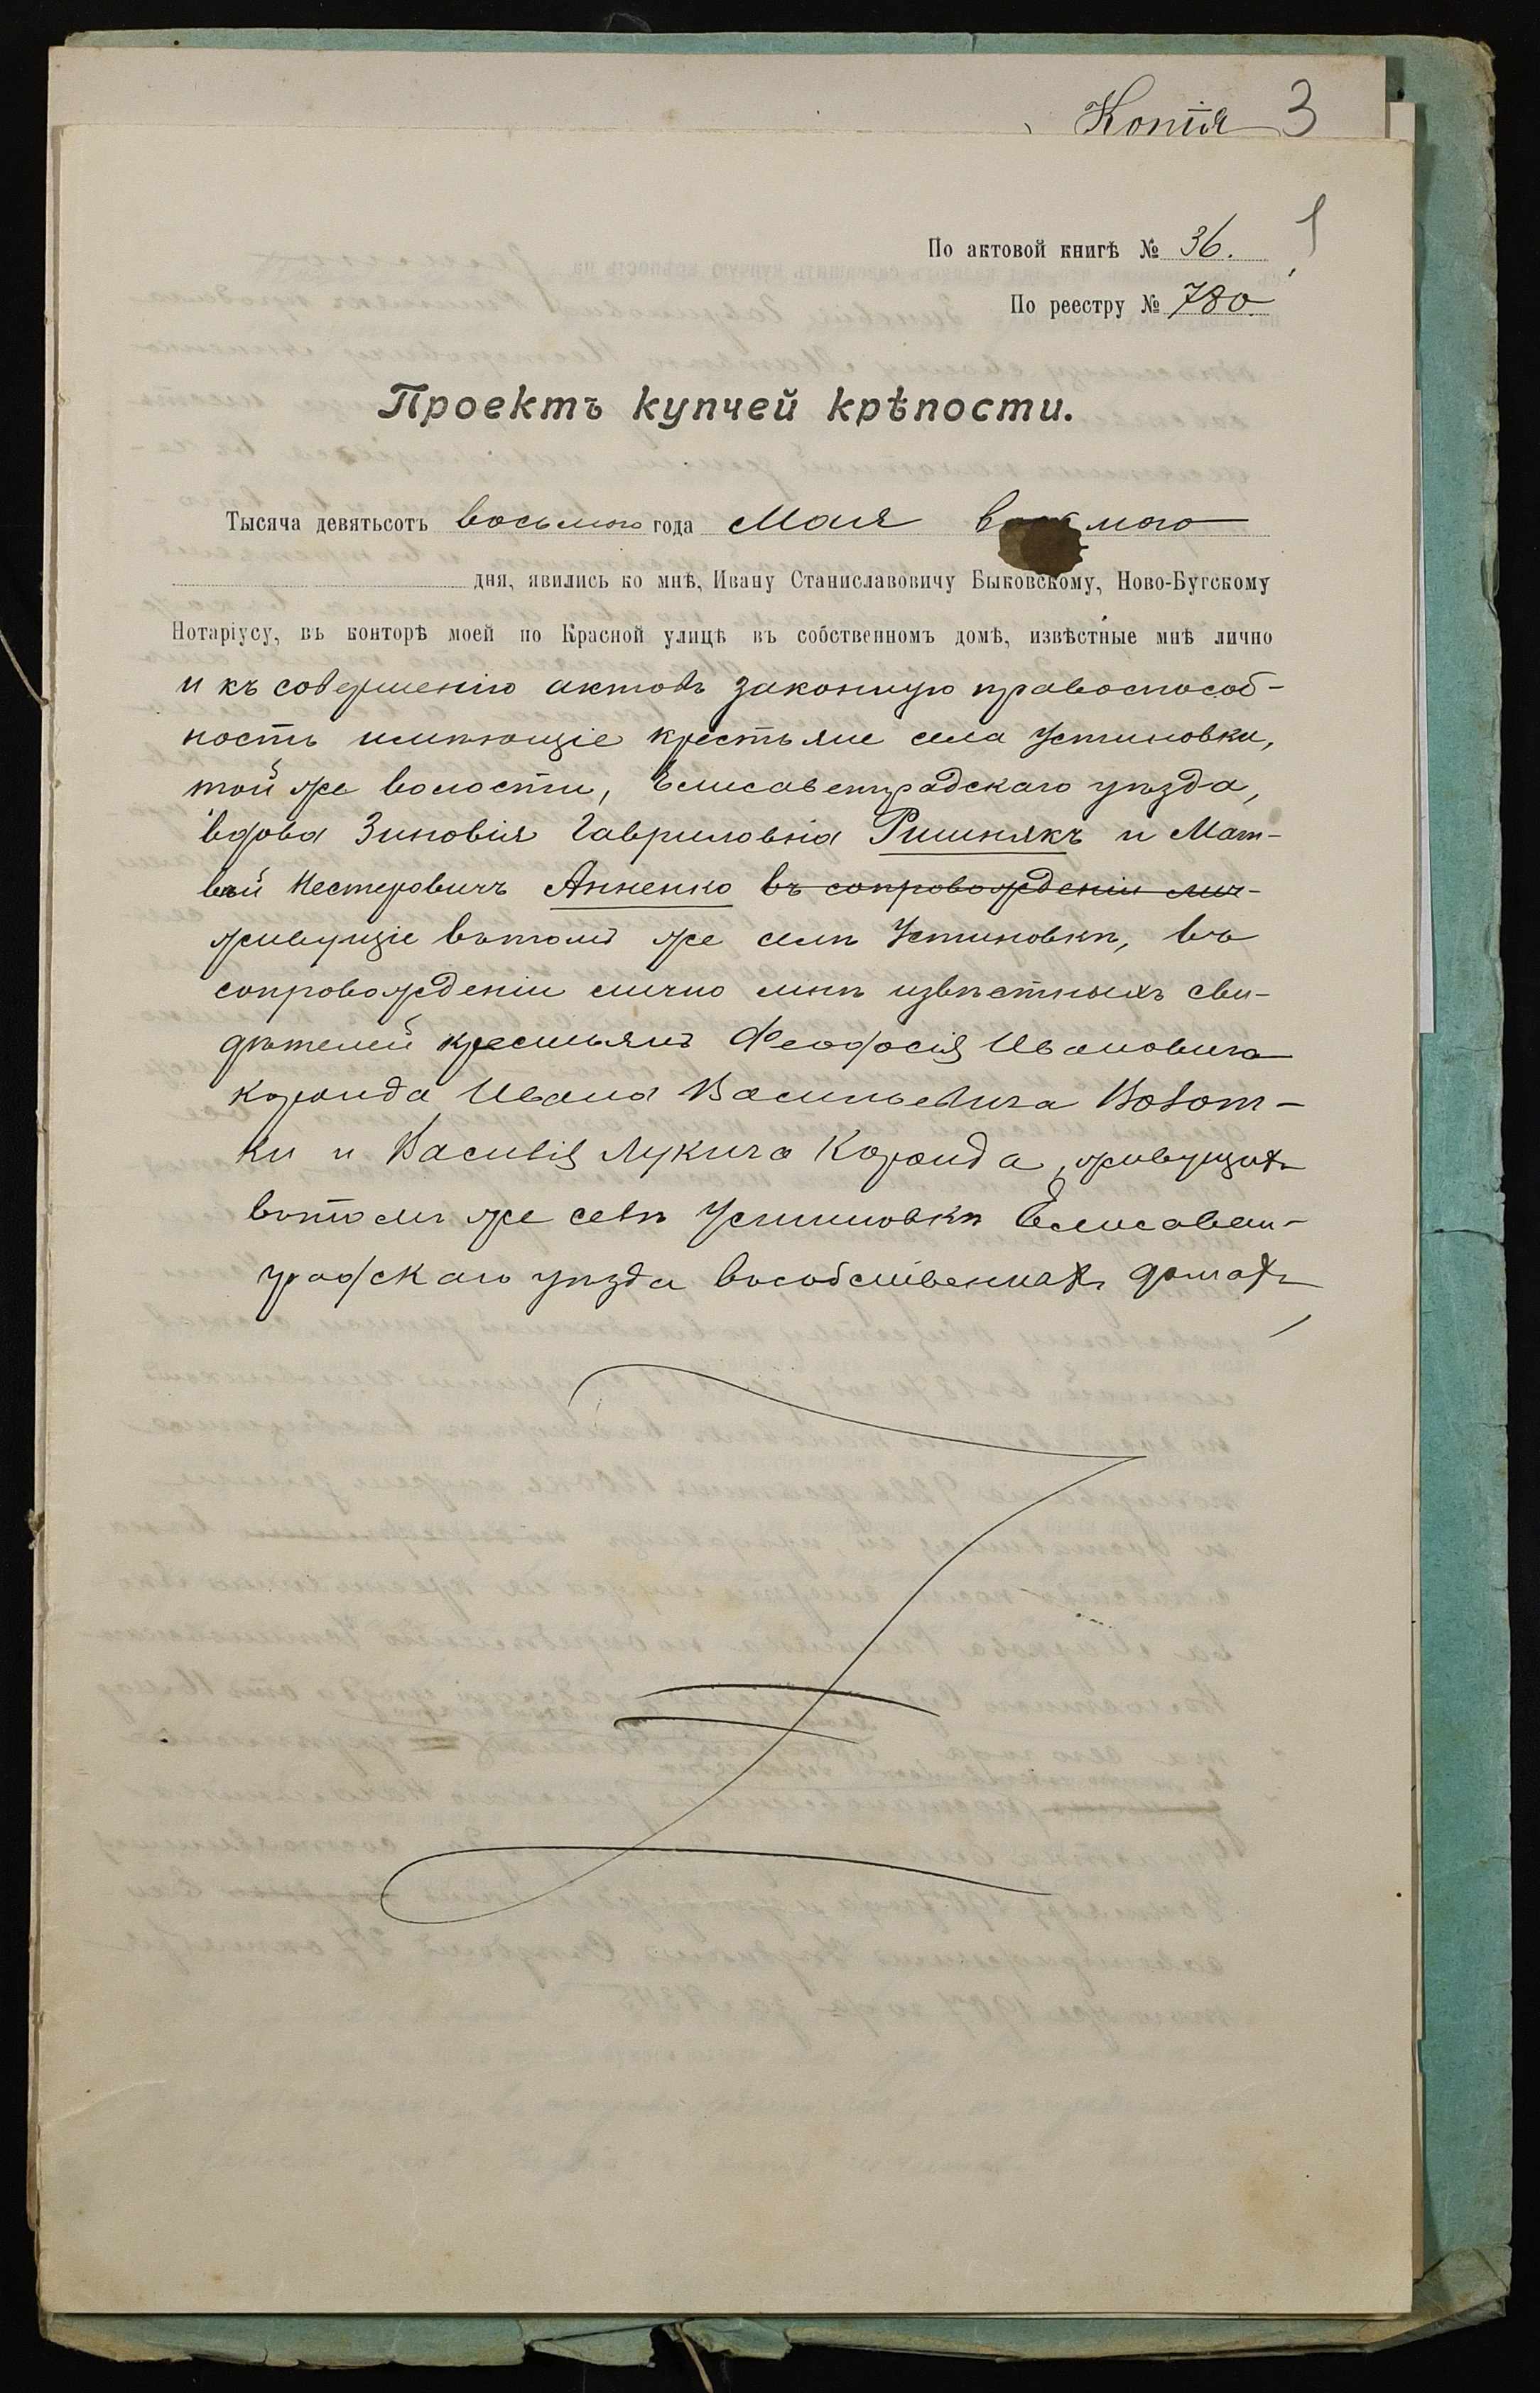 Копія 3
1
По актовой книгѣ № 36.
По реестру № 780
Проектъ купчей крѣпости.
Тысяча девятьсотъ восьмого года Мая восьмого
дня, явились ко мнѣ, Ивану Станиславовичу Быковскому, Ново-Бугскому
Нотаріусу, въ конторѣ моей по Красной улицѣ въ собственномъ домѣ, извѣстные мнѣ лично
и къ совершенію актовъ законную правоспособ-
ность имѣющіе крестьяне села Устиновки,
той же волости, Елисаветградскаго уѣзда,
вдова Зиновія Гавриловна Ришнякъ и Мат-
вѣй Нестеровичъ Анненко въ сопровожденіи лич-
живущіе въ томъ же селѣ Устиновкѣ, въ
сопровожденіи лично мнѣ извѣстныхъ сви-
дѣтелей крестьянъ Феодосія Ивановича
Ивана Васильевича
ки и Василія Лукича живущихъ
въ томъ же селѣ Устиновкѣ Елисавет-
градскаго уѣзда въ собственныхъ домахъ